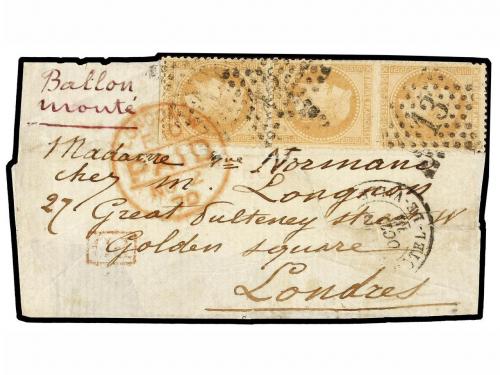 Ballon
monté
Madame Vve Normand
chez m. Longnon
27 Great Pulteney street W
Golden square
Londres
PAID
13
OCT